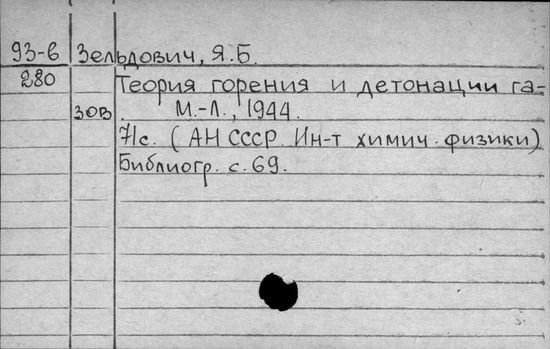 93-6 Зельдович, Я.Б.
280 Теория горения и детонации га-
ЗОВ М.-Л., 1944.
71с. (АН СССР. Ин-т химич. физики)
Библиогр. с. 69.